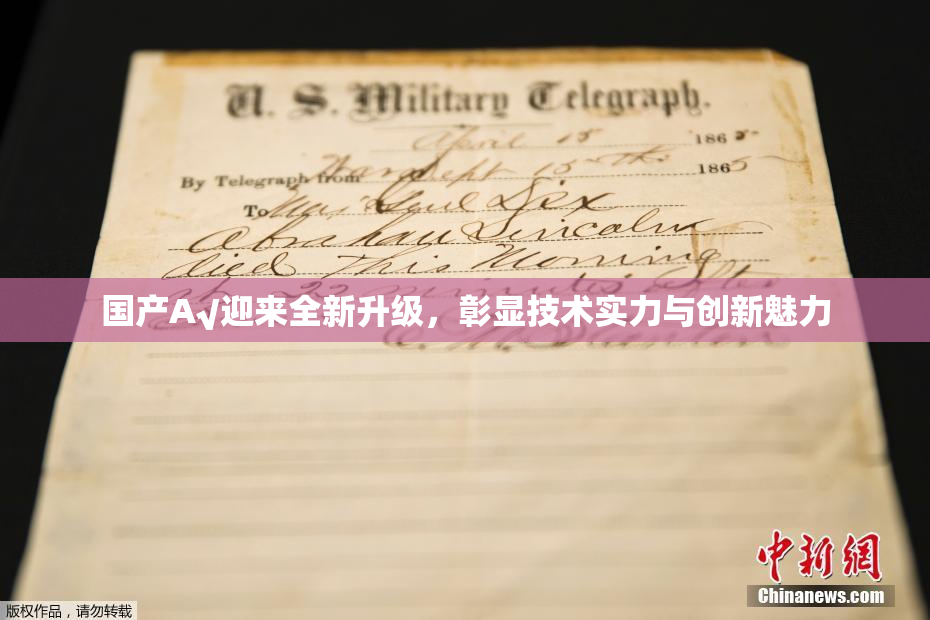 U. S. Military Telegraph.
April 15 1865
By Telegraph from War Dept 15th 1865
To Maj Genl Dix
Abraham Lincoln
died This Morning
at 22 minutes after
国产A√迎来全新升级，彰显技术实力与创新魅力
中新网
Chinanews.com
版权作品，请勿转载